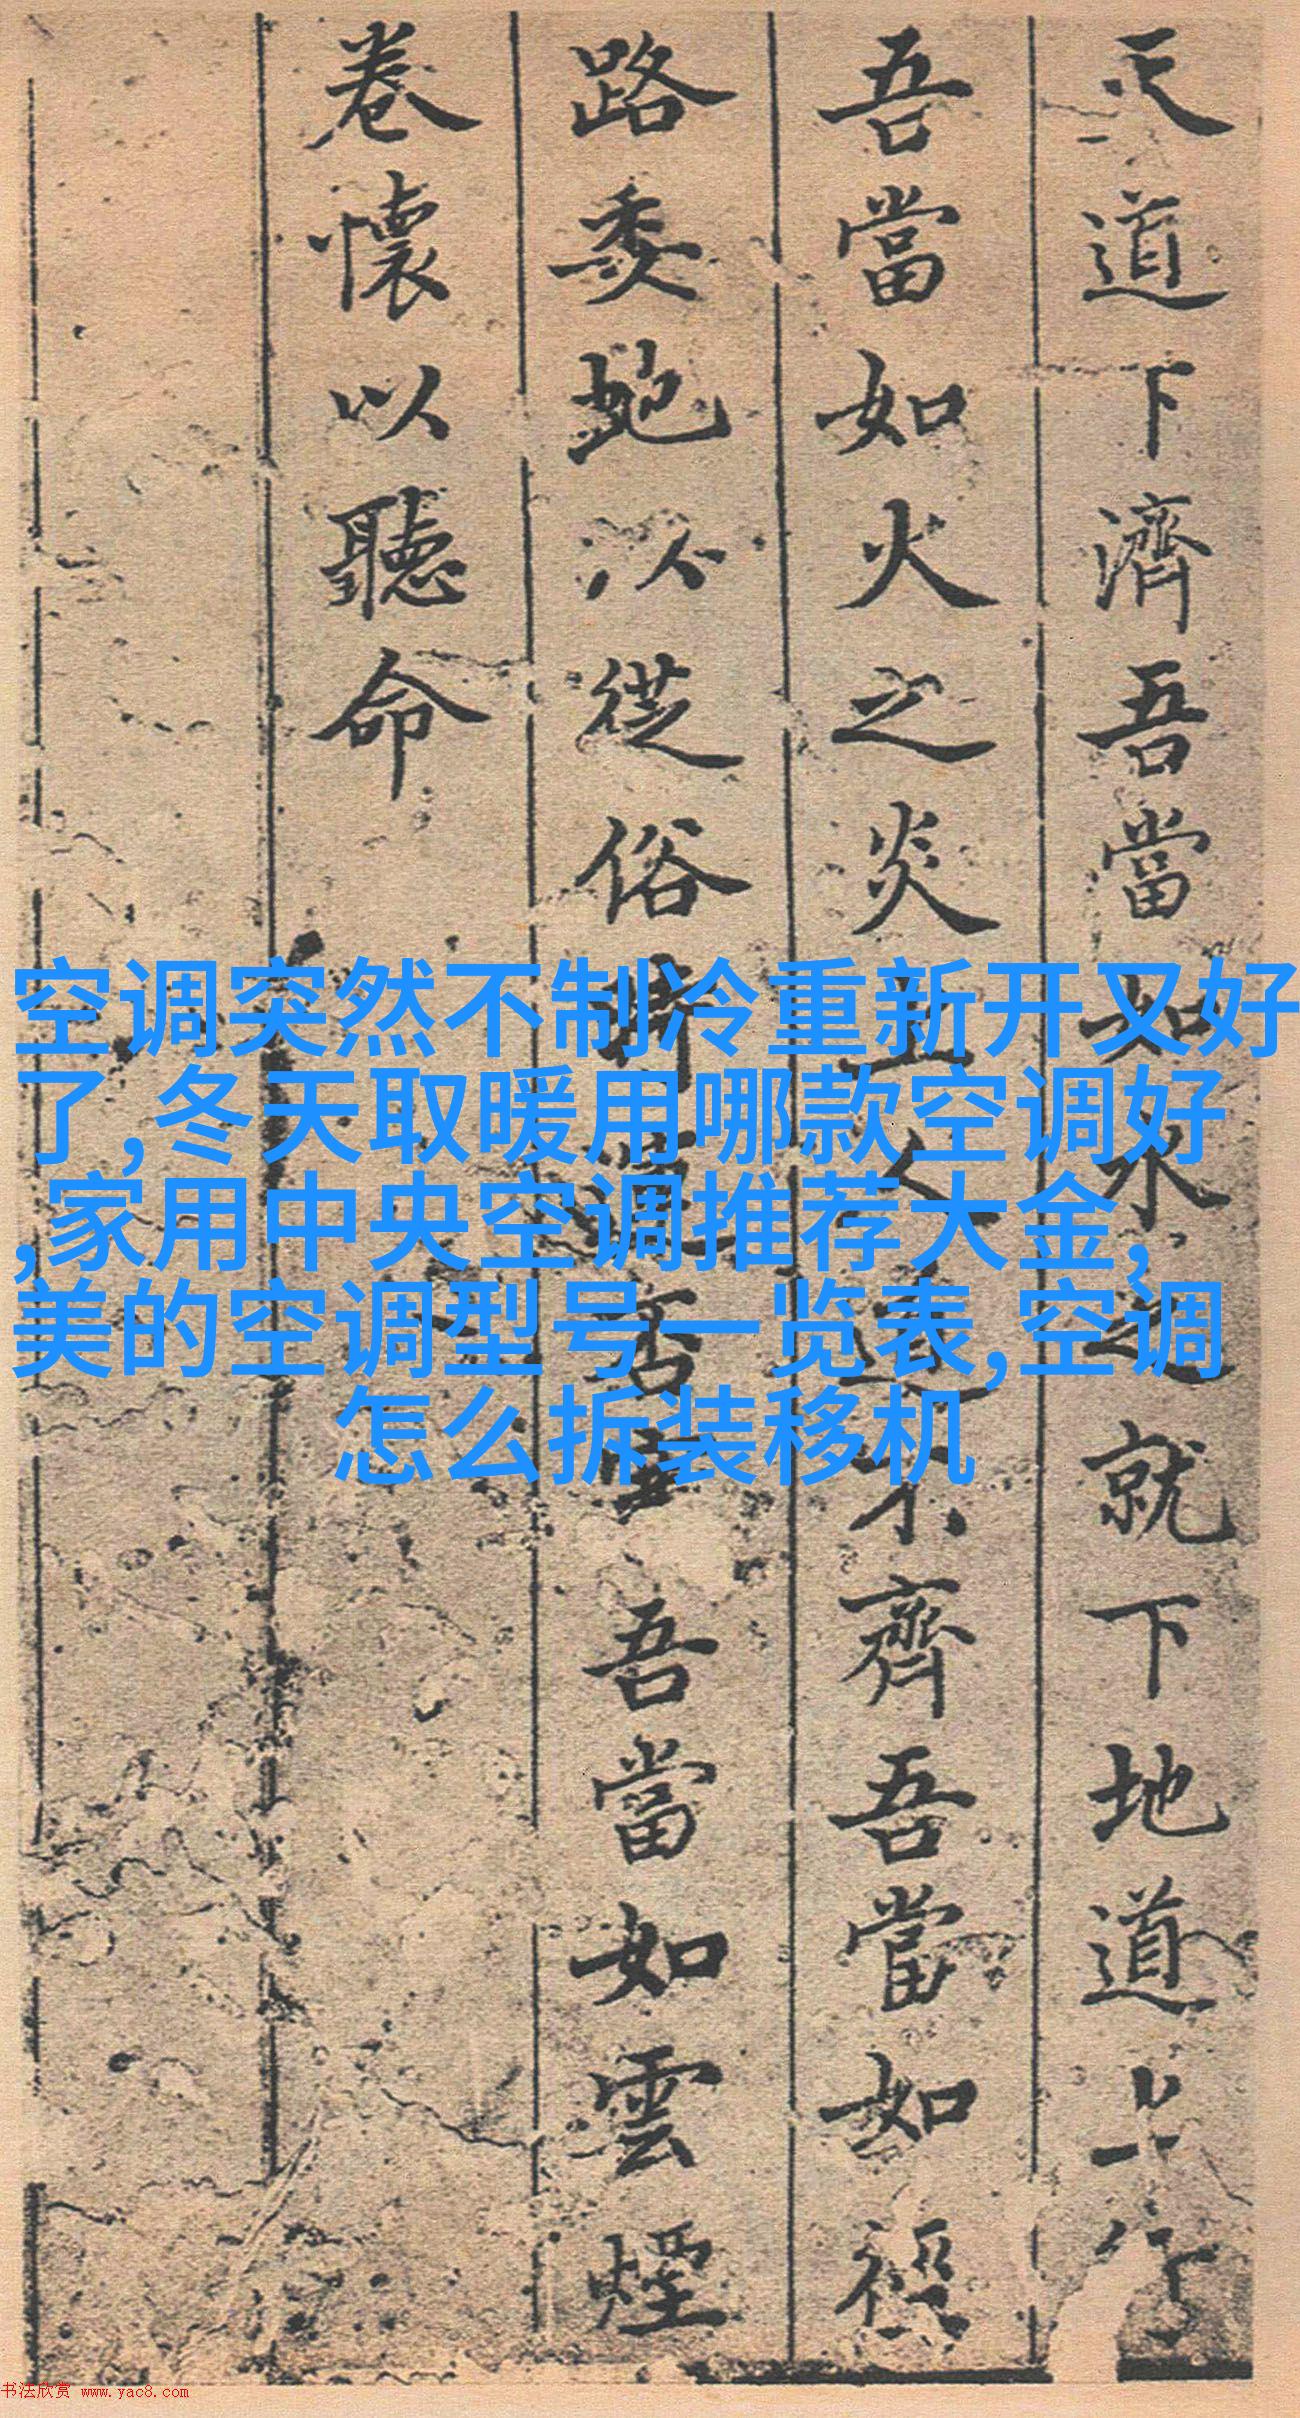 天道下濟吾當如水之就下地道上行
吾當如火之炎上人道不齊吾當如征
路委蛇以從俗時道否塞吾當如雲煙
卷懷以聽命
空调突然不制冷重新开又好
了,冬天取暖用哪款空调好
,家用中央空调推荐大金,
美的空调型号一览表,空调
怎么拆装移机
书法欣赏 www.yac8.com